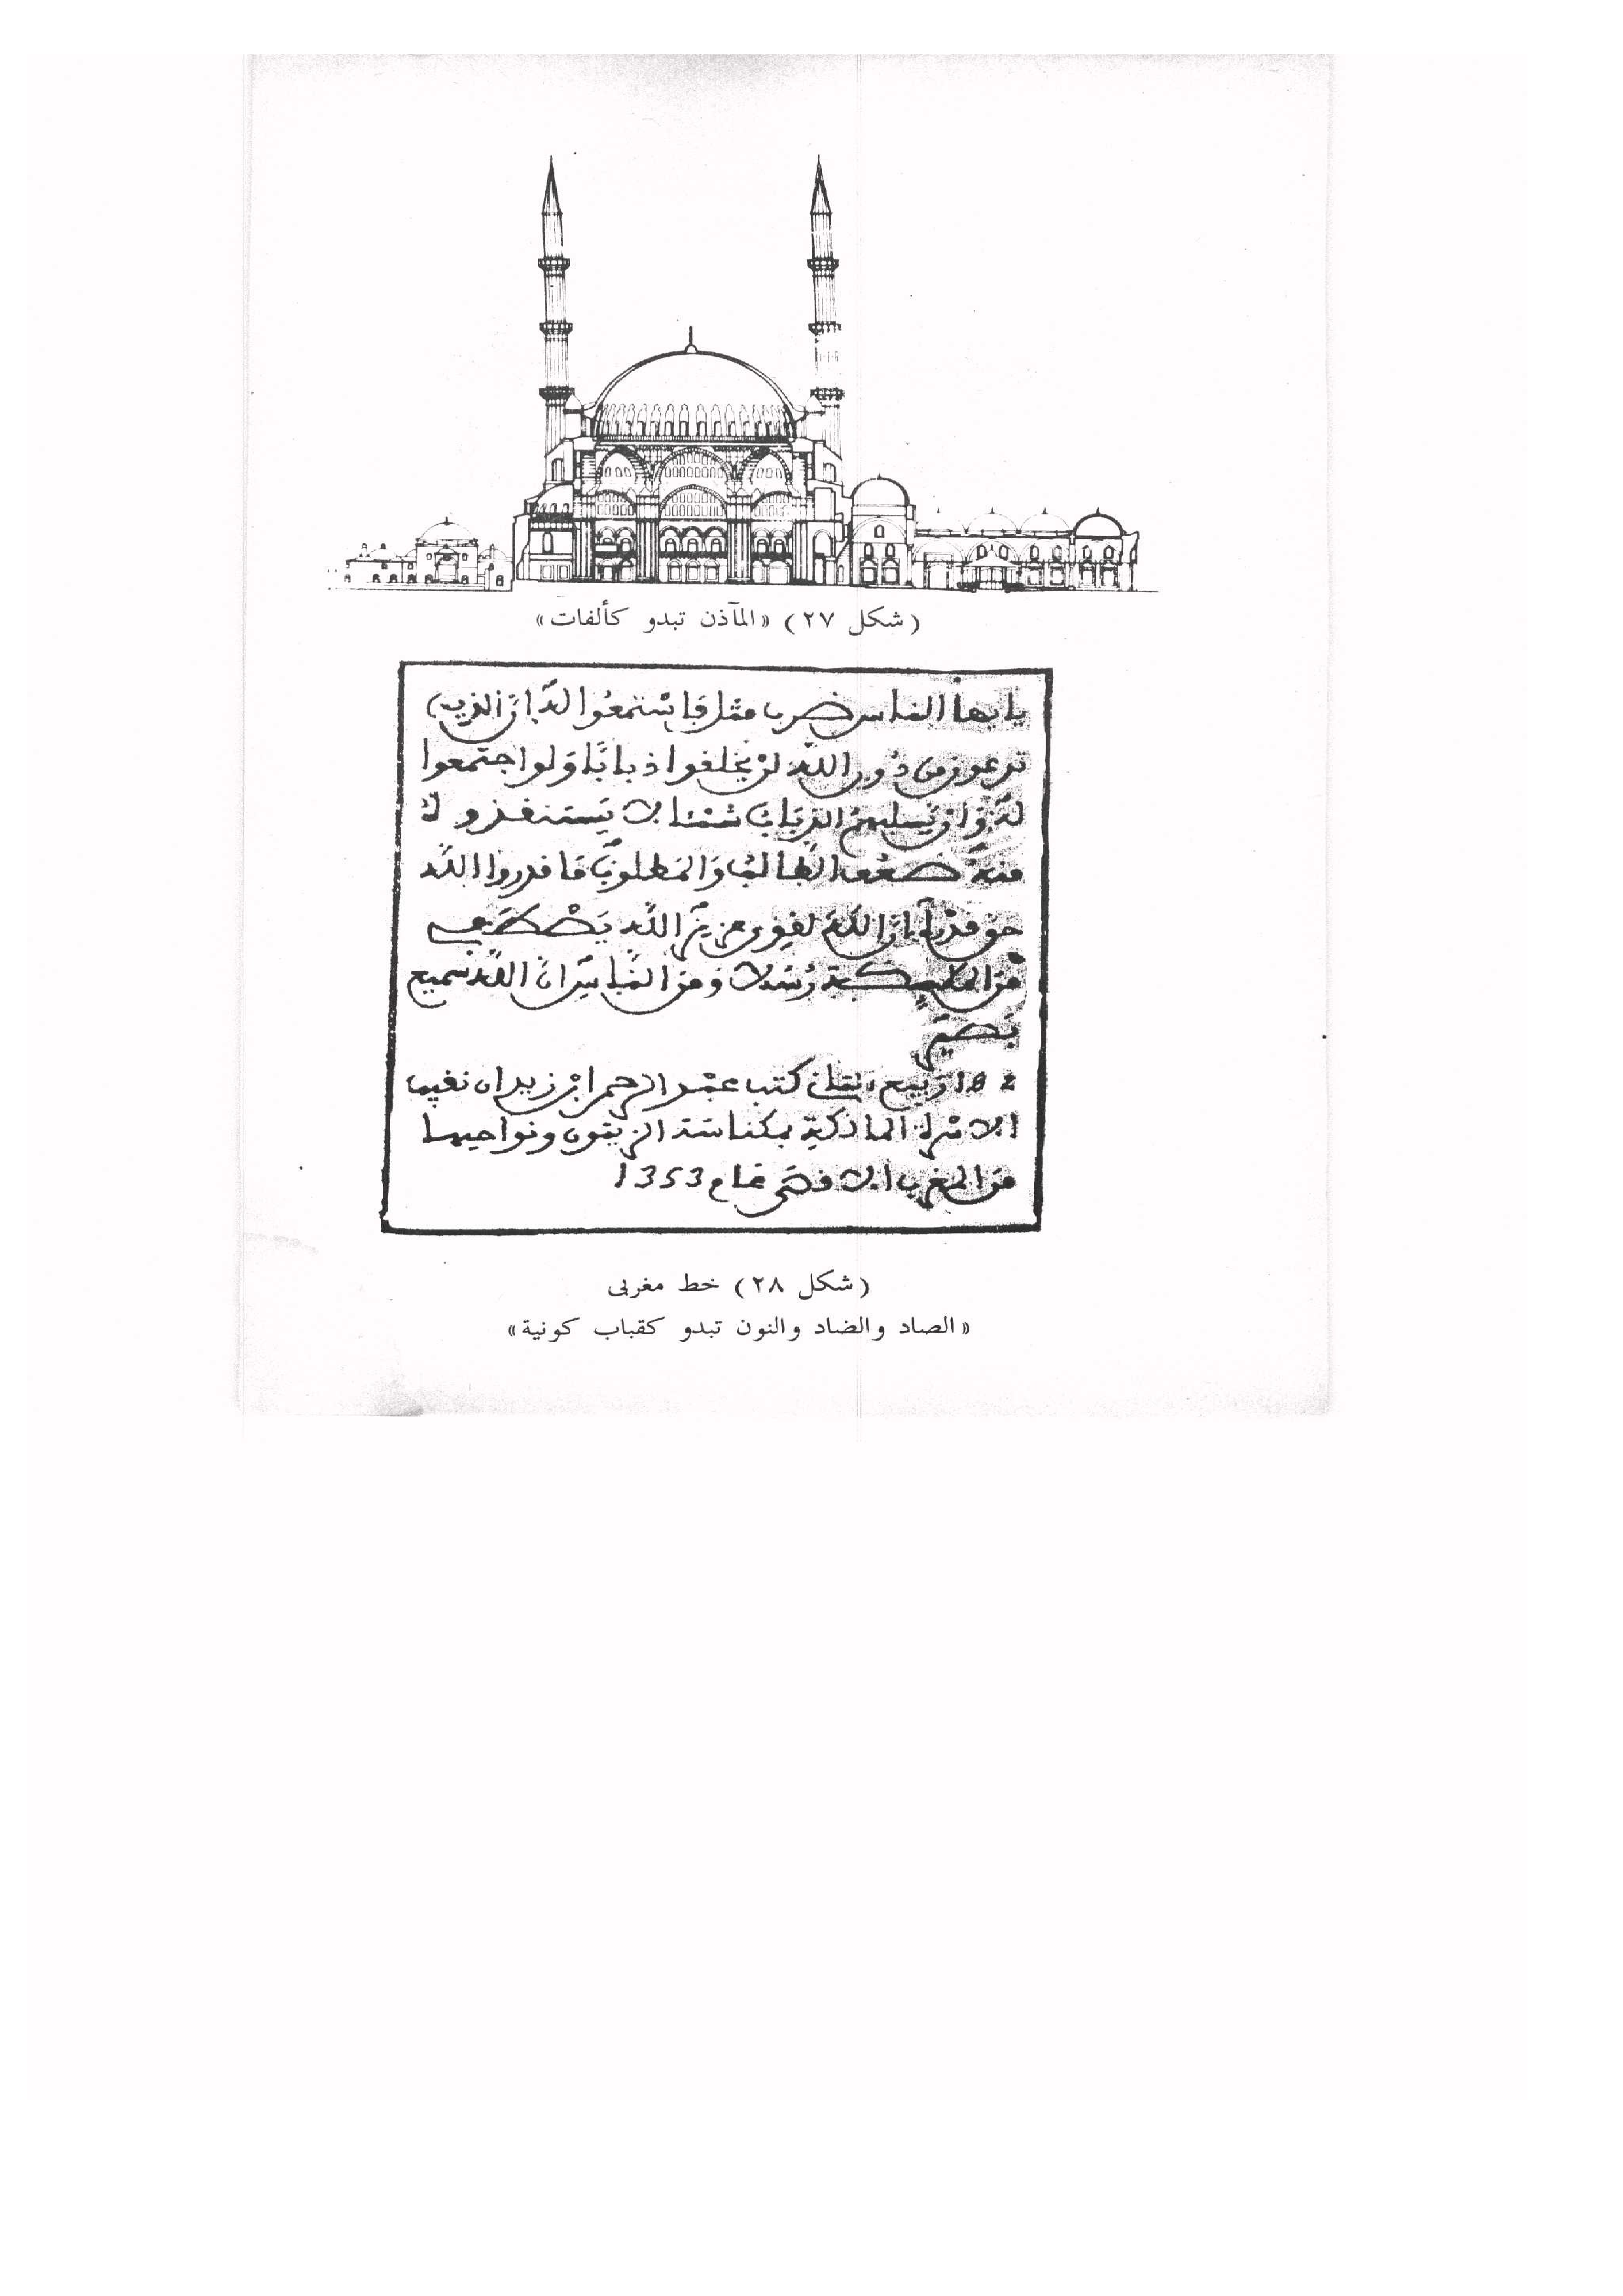 (شكل ٢٧) «المآذن تبدو كألفات»
يا يها الناس ضرب مثل فاستمعوا له ان الذين
تدعون من دون الله لن يخلقوا ذبابا ولو اجتمعوا
له وان يسلبهم الذباب شئا لا يستنقذوه
منه ضعف الطالب والمطلوب ما قدروا الله
حق قدره ان الله لقوي عزيز الله يصطفي
من الملائكة رسلا ومن الناس ان الله سميع
بصير
ربيع الثاني كتب عبد الرحمن ابن زيدان نقيب
الاشراف بمكناسة الزيتون ونواحيها
من المغرب الاقصى عام 1353
(شكل ٢٨) خط مغربى
«الصاد والضاد والنون تبدو كقباب كونية»